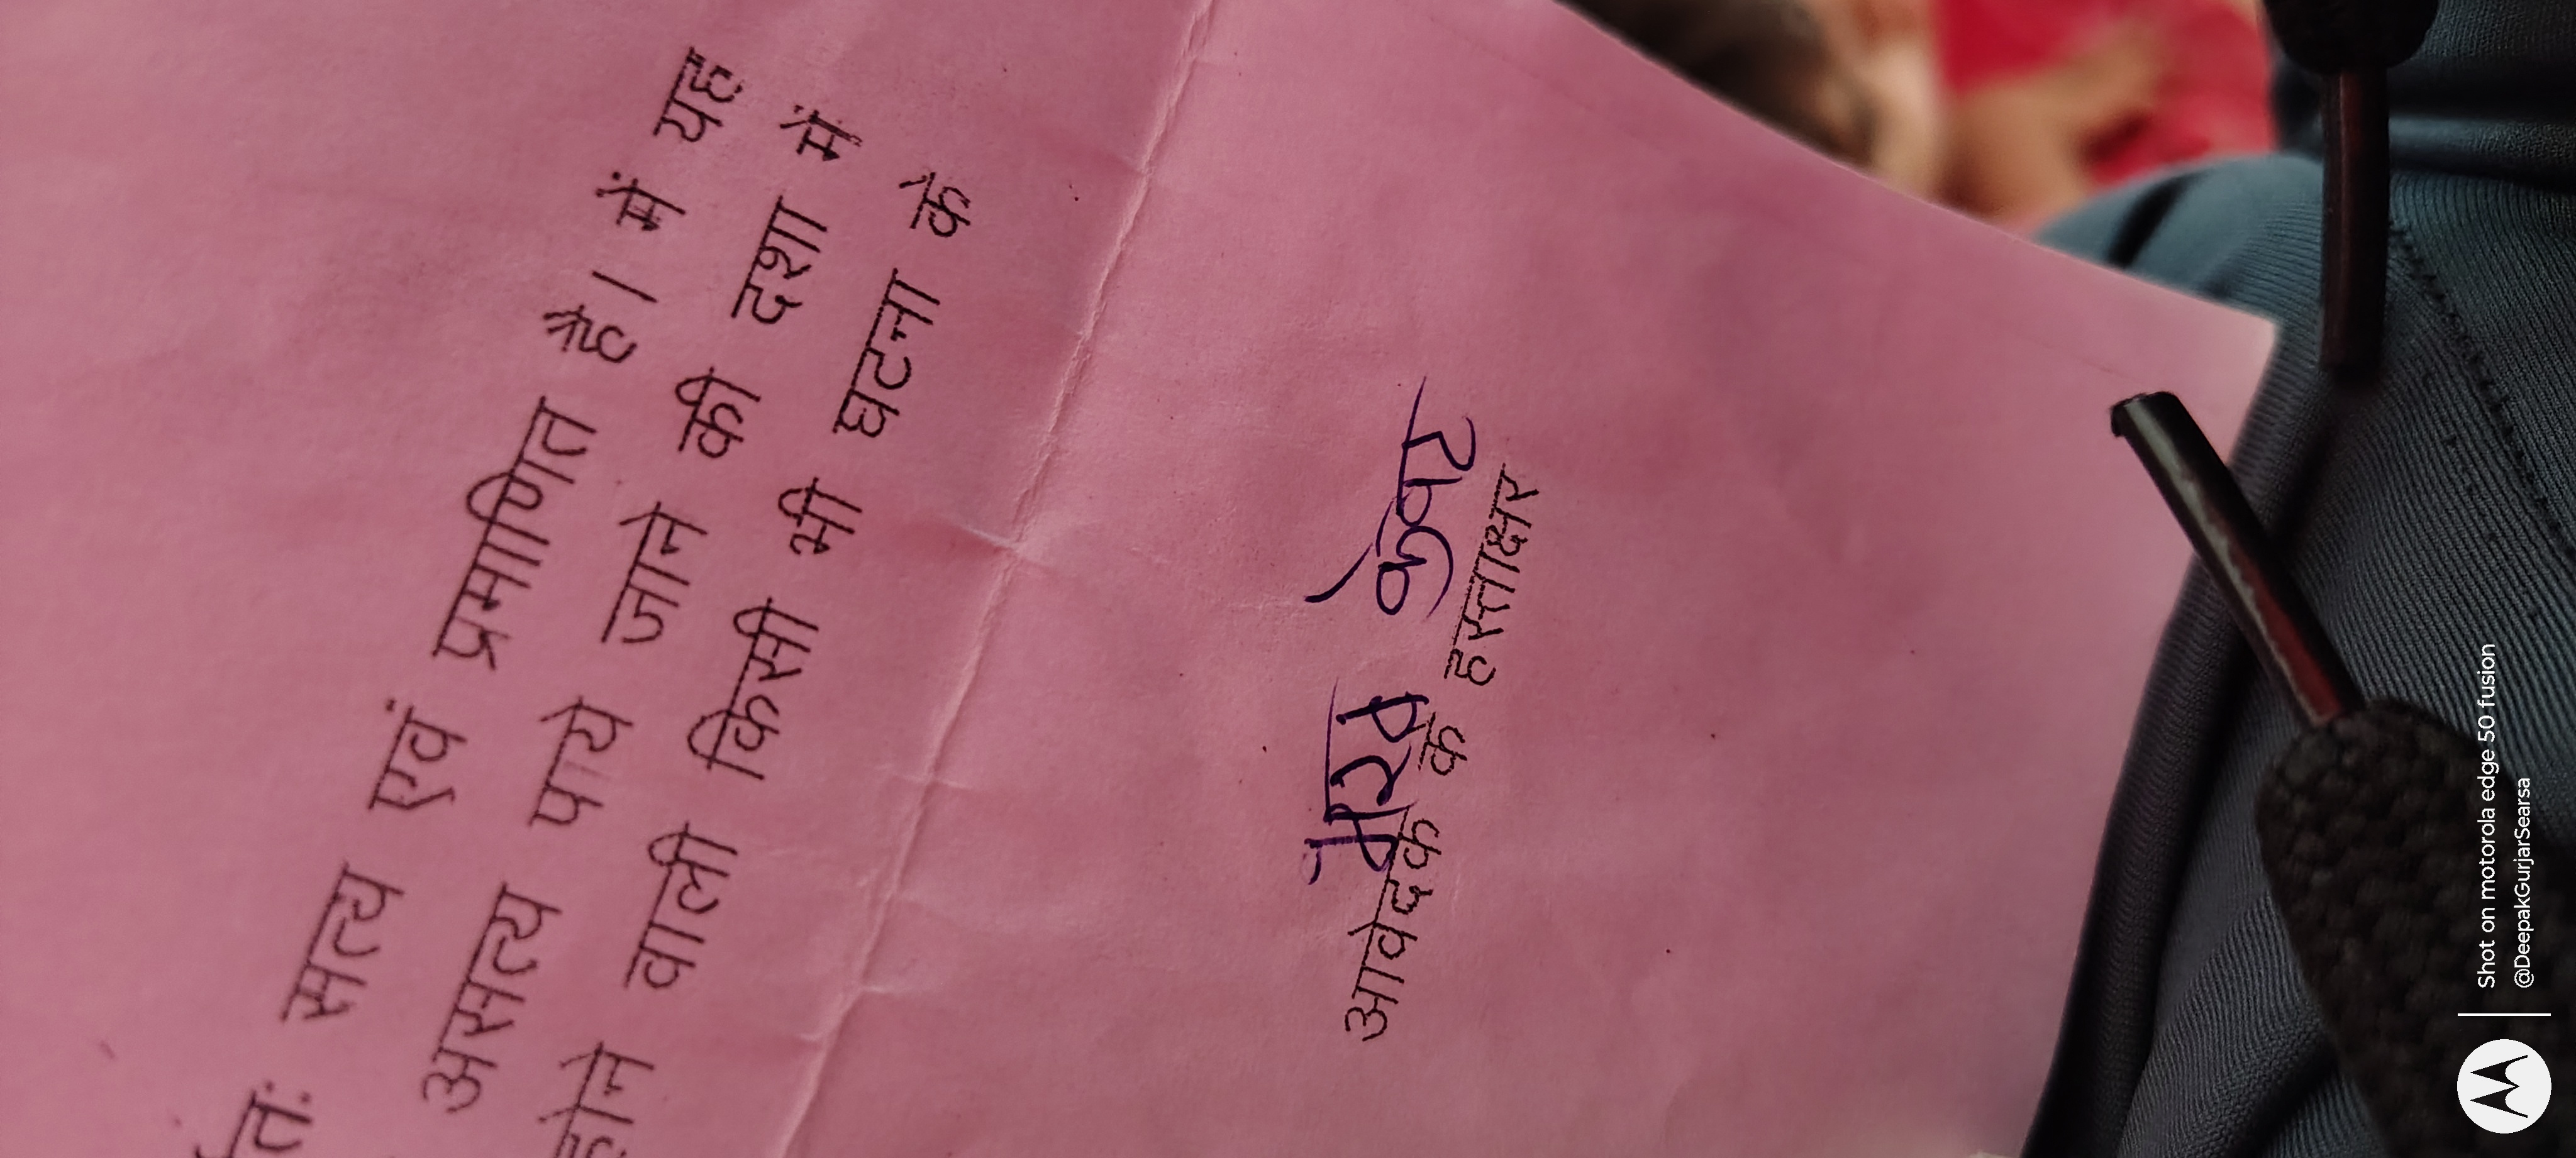 सत्य एवं प्रमाणित है। मैं यह
असत्य पाये जाने की दशा में
होने वाली किसी भी घटना के
भैरव कुवर
आवेदक के हस्ताक्षर
Shot on motorola edge 50 fusion
@DeepakGurjarSearsa